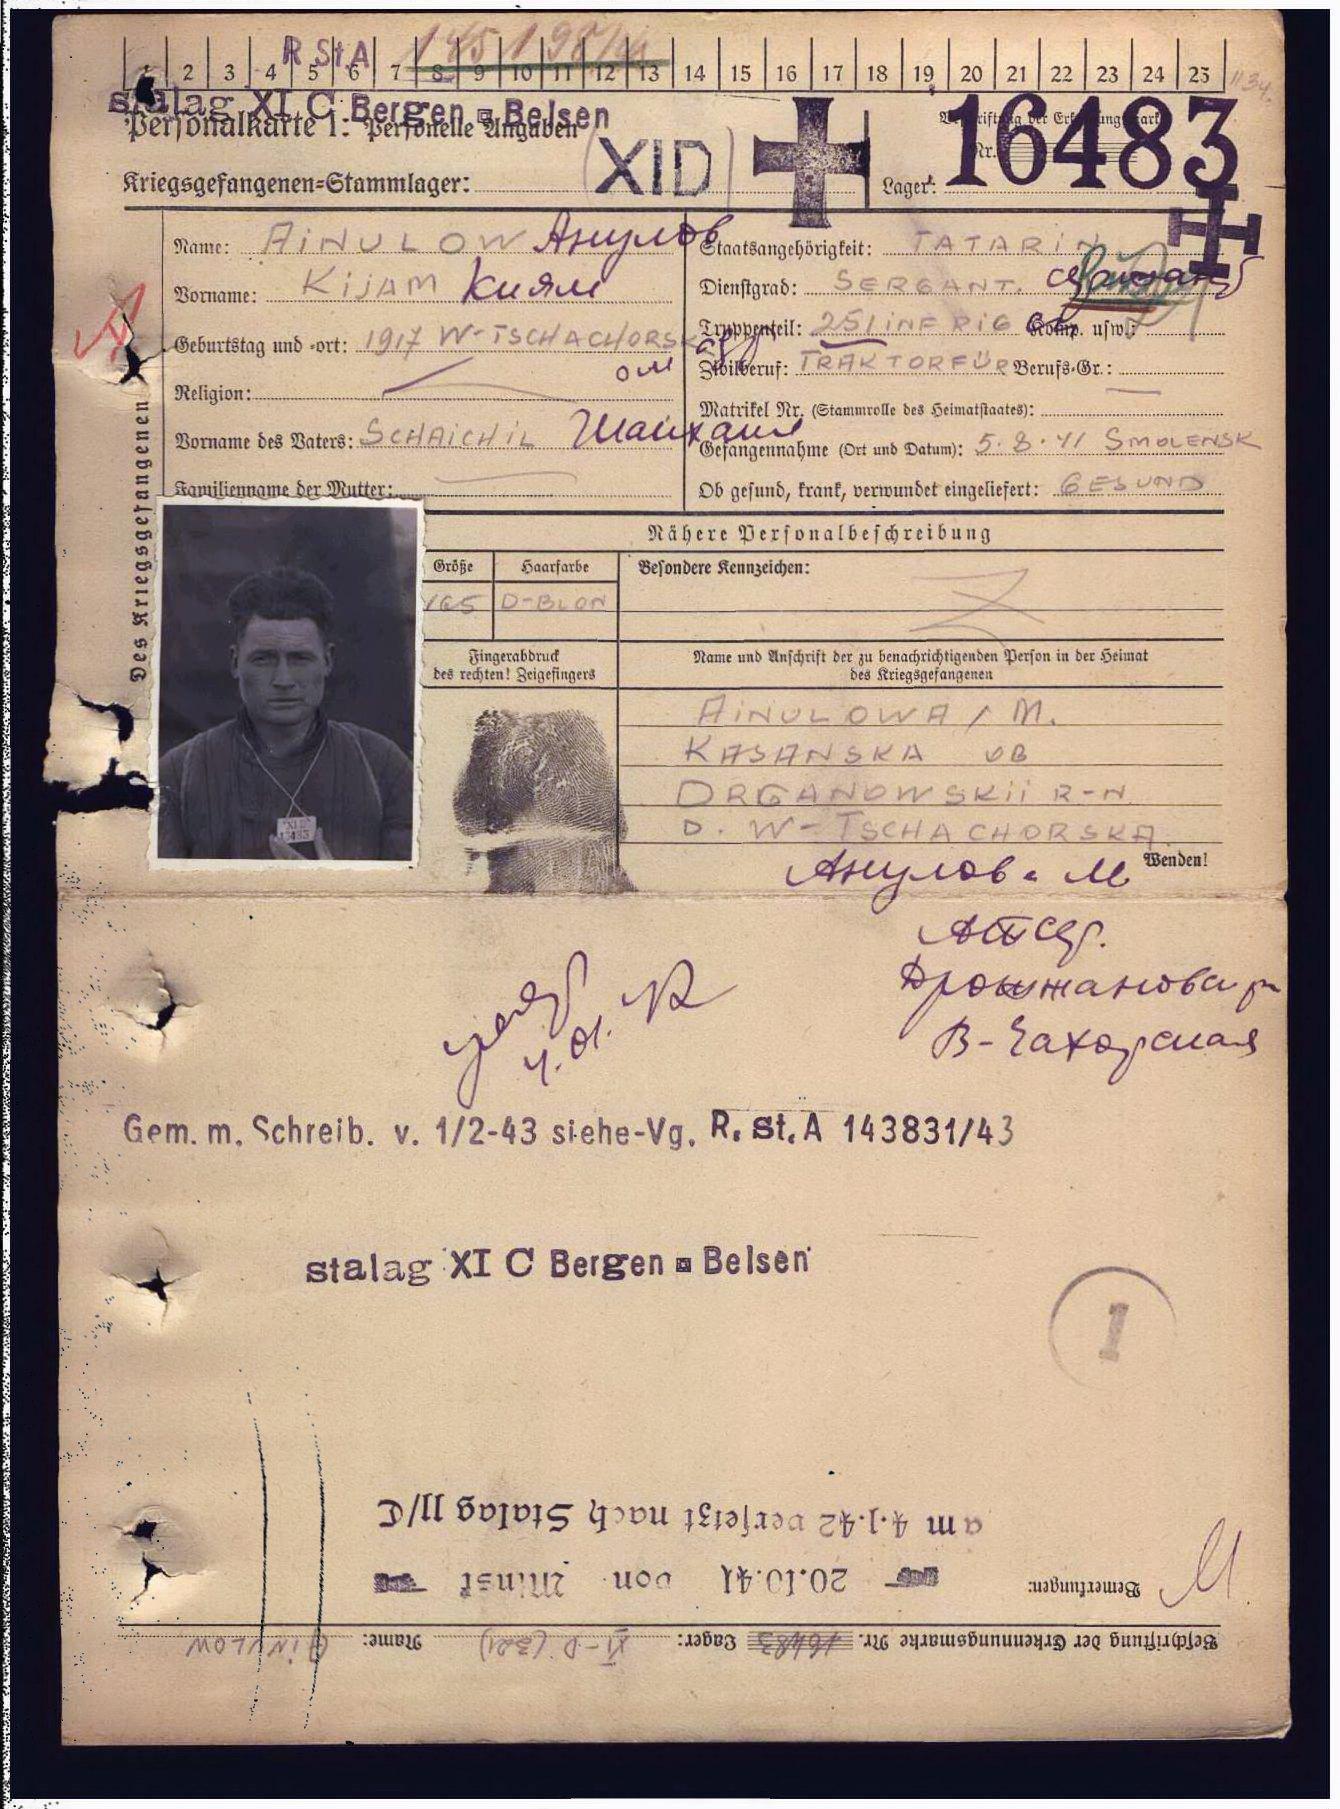 R.St.A
1 2 3 4 5 6 7 8 9 10 11 12 13 14 15 16 17 18 19 20 21 22 23 24 25
stalag XI C Bergen Belsen
Personalkarte 1: Personelle Angaben
Kriegsgefangenen=Stammlager: XID
Beschriftung der Erkennungsmarke
Nr. 16483
Lager:
Des Kriegsgefangenen
Name: AINULOW Анулов
Vorname: KIJAM Киям
Geburtstag und -ort: 1917 W-TSCHACHORSKA
Religion:
Vorname des Vaters: SCHAICHIL
Familienname der Mutter:
Staatsangehörigkeit: TATARIN
Dienstgrad: SERGANT.
Truppenteil: 251 INF RIG Komp. usw.:
Zivilberuf: TRAKTORFÜR Berufs-Gr.:
Matrikel Nr. (Stammrolle des Heimatstaates):
Gefangennahme (Ort und Datum): 5.8.41 SMOLENSK
Ob gesund, krank, verwundet eingeliefert: GESUND
Nähere Personalbeschreibung
Größe Haarfarbe Besondere Kennzeichen:
165 D-BLON
Fingerabdruck
des rechten! Zeigefingers
Name und Anschrift der zu benachrichtigenden Person in der Heimat
des Kriegsgefangenen
AINULOWA / M.
KASANSKA OB
DRGANOWSKII R-N
D. W-TSCHACHORSKA
Wenden!
Анулова М
Дрожжановск рн
В-Чахорская
Gem. m. Schreib. v. 1/2-43 siehe-Vg. R. St. A 143831/43
stalag XI C Bergen Belsen
1
am 4.1.42 versetzt nach Stalag 11/C
20.10.41 von Minsk
Bemerkungen:
Beschriftung der Erkennungsmarke Nr. 16483 Lager: XI-D (321) Name: AINULOW